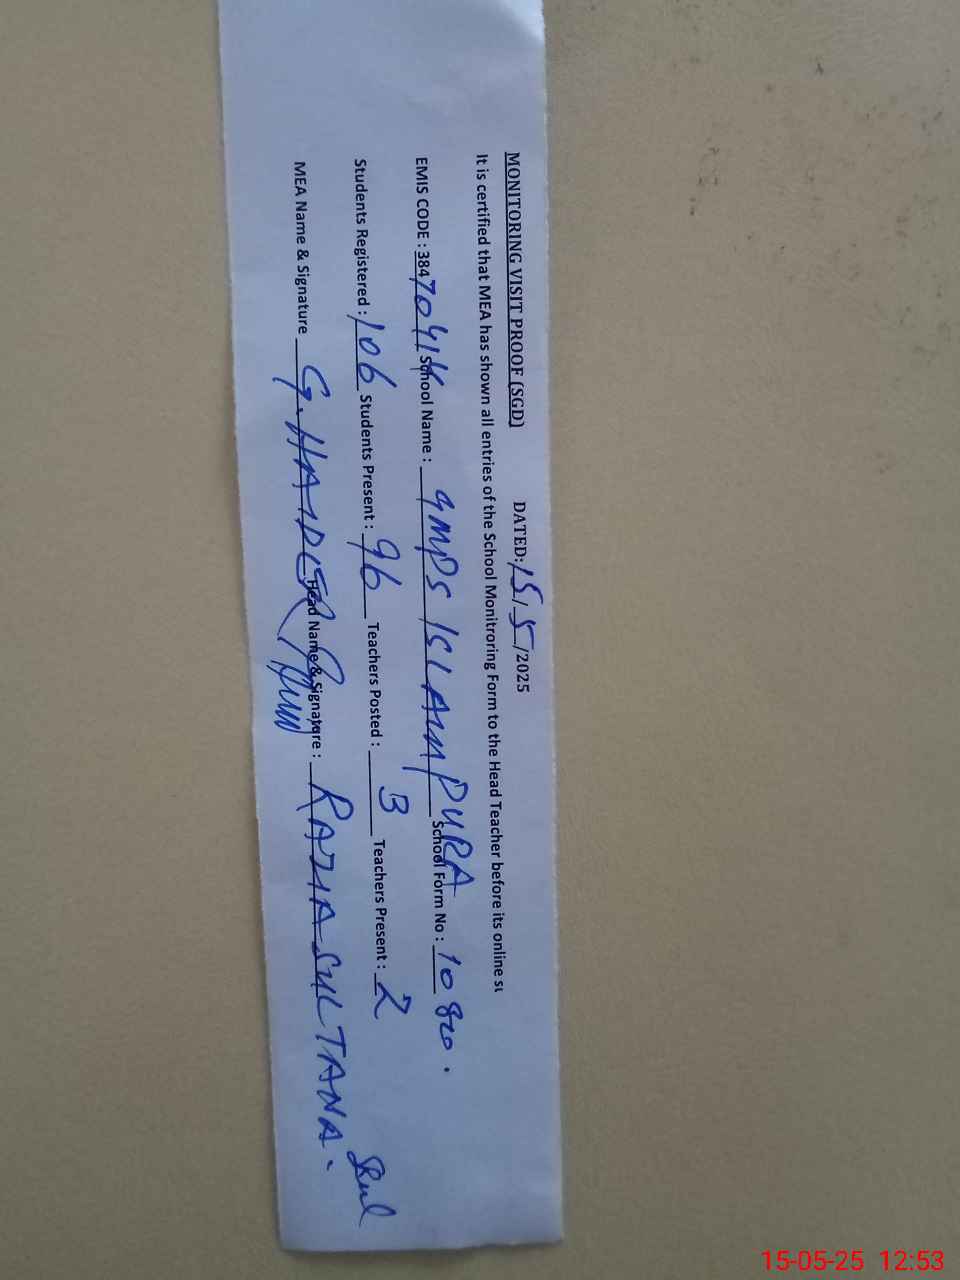 MONITORING VISIT PROOF (SGD) DATED: 15/5/2025
It is certified that MEA has shown all entries of the School Monitroring Form to the Head Teacher before its online su
EMIS CODE : 38470414 School Name : GMPS ISLAMPURA School Form No : 10820.
Students Registered : 106 Students Present : 96 Teachers Posted : 3 Teachers Present : 2
MEA Name & Signature G. HAIDER Head Name & Signature : RAZIA SULTANA.
15-05-25 12:53